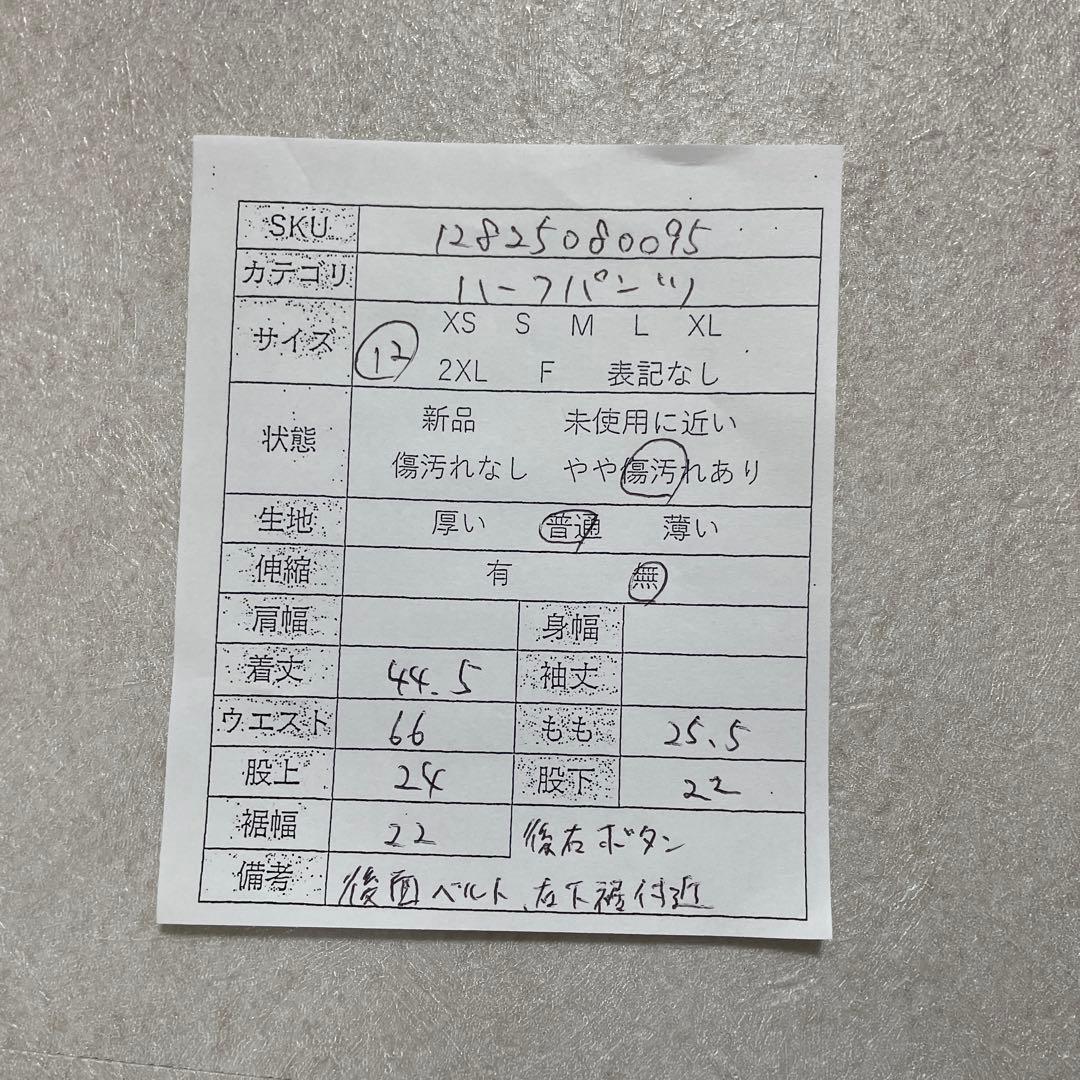 SKU 12825080095
カテゴリ ハーフパンツ
サイズ 12 XS S M L XL
2XL F 表記なし
状態 新品 未使用に近い
傷汚れなし やや傷汚れあり
生地 厚い 普通 薄い
伸縮 有 無
肩幅 身幅
着丈 44.5 袖丈
ウエスト 66 もも 25.5
股上 24 股下 22
裾幅 22 後右ボタン
備考 後面ベルト、左下裾付近